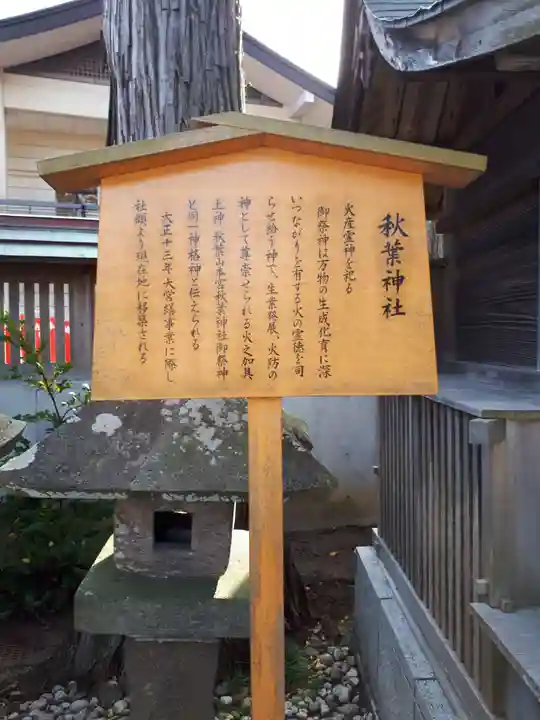 秋葉神社
火産霊神を祀る
御祭神は万物の生成化育に深
いつながりを有する火の霊徳を司
らせ給う神で、生業発展、火防の
神として尊崇せられる火之加具
土神 秋葉山本宮秋葉神社御祭神
と同一神格神と伝えられる
大正十三年大営繕事業に際し
社頭より現在地に移築される